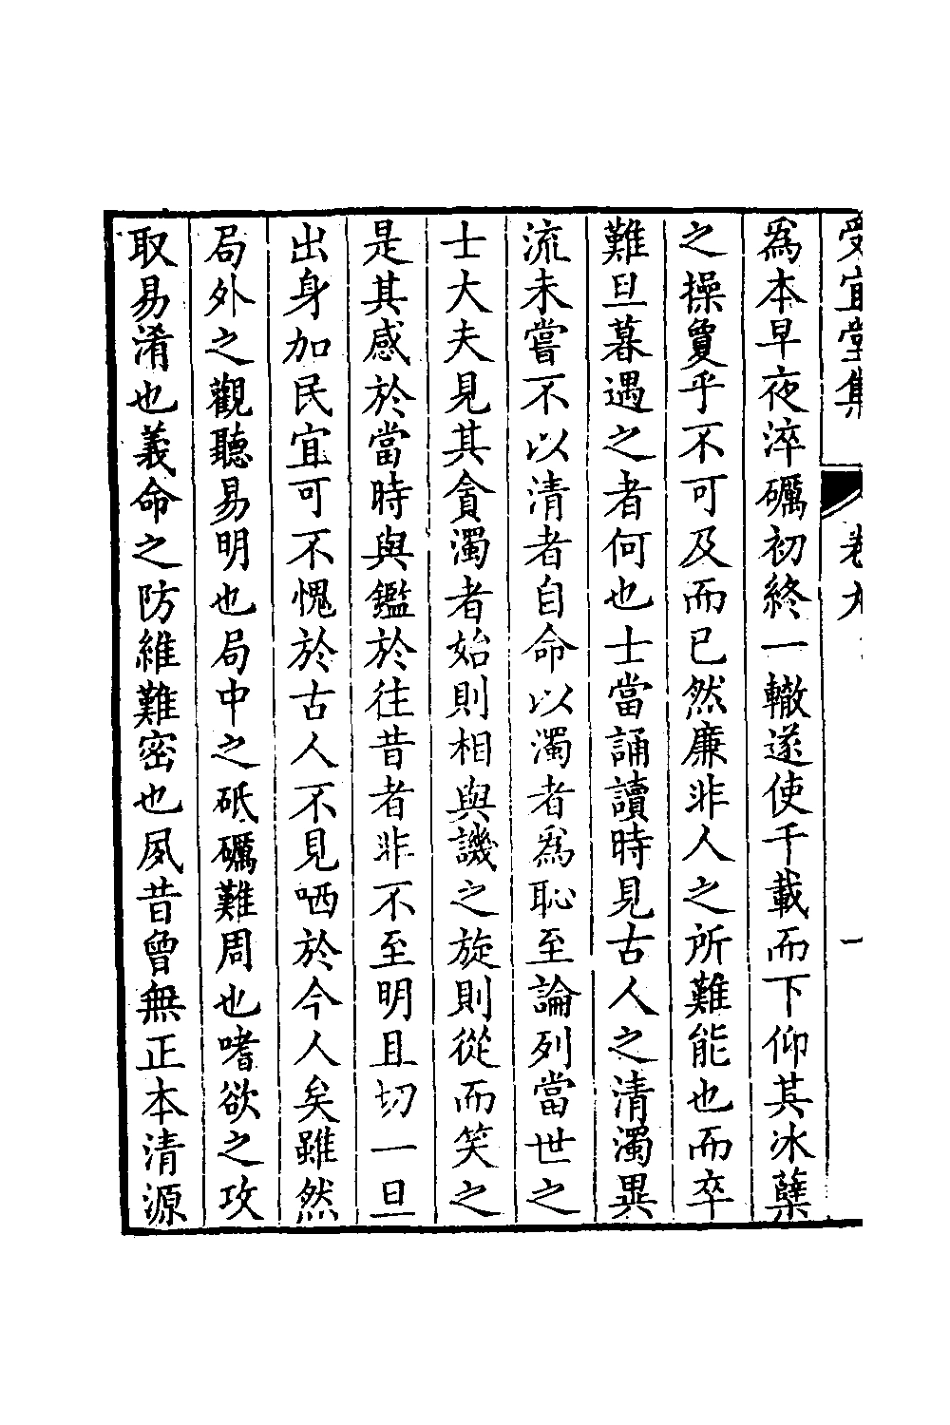 受宜堂集 卷九 一
爲本早夜淬礪初終一轍遂使千載而下仰其冰蘗
之操敻乎不可及而已然廉非人之所難能也而卒
難旦暮遇之者何也士當誦讀時見古人之清濁異
流未嘗不以清者自命以濁者爲恥至論列當世之
士大夫見其貪濁者始則相與譏之旋則從而笑之
是其感於當時與鑑於往昔者非不至明且切一旦
出身加民宜可不愧於古人不見哂於今人矣雖然
局外之觀聽易明也局中之砥礪難周也嗜欲之攻
取易淆也義命之防維難密也夙昔曾無正本清源